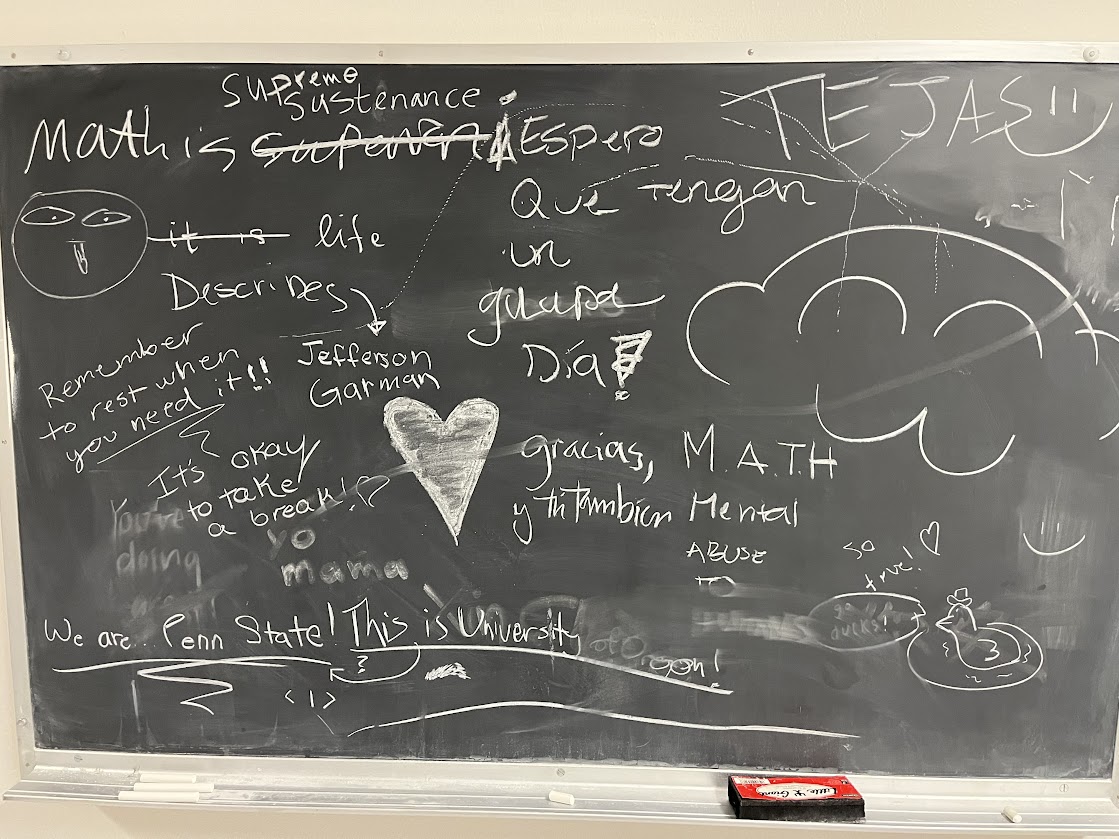 supreme
sustenance
Math is
¡Espero
Que tengan
un
guapa
Día!
TEJAS
it is life
Describes
Jefferson
Garman
Remember
to rest when
you need it!!
It's okay
to take
a break!
You're
doing
yo
mama
gracias,
y también
M.A.T.H
Mental
ABUSE
TO
so
true!
go
ducks!
We are.. Penn State! This is University
of Oregon!
?
<1>
Little Giant